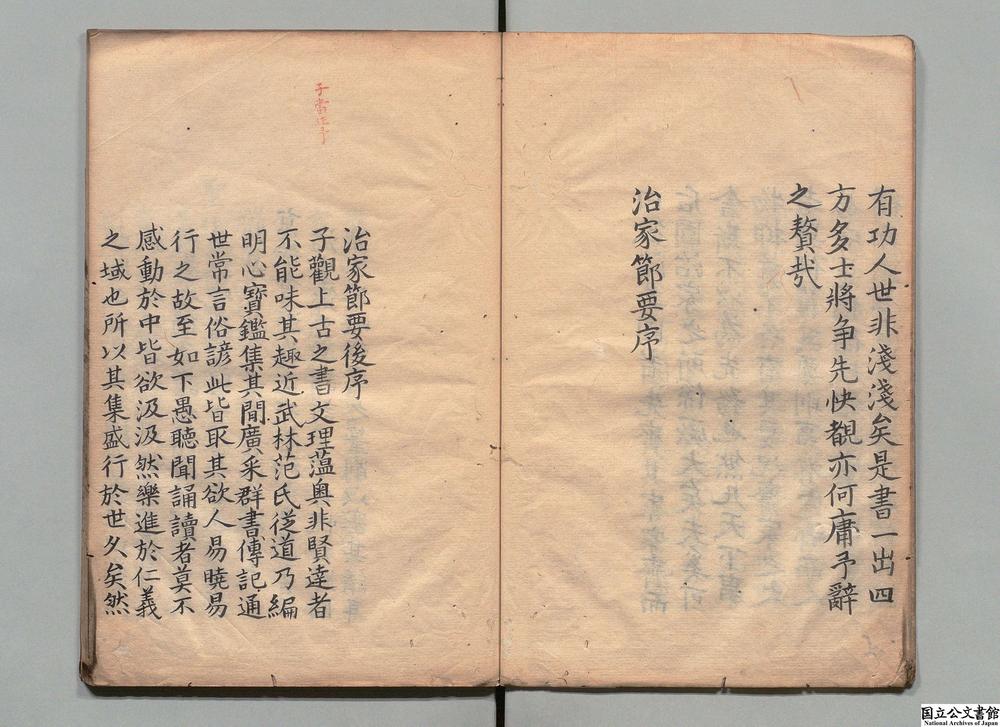 有功人世非淺淺矣是書一出四
方多士將争先快覩亦何庸予辭
之贅㢤
治家節要序
子當正予
治家節要後序
子觀上古之書文理蕰奥非賢逹者
不能味其趣近武林范氏從道乃編
明心寳鑑集其間廣采群書傳記通
世常言俗諺此皆取其欲人易曉易
行之故至如下愚聽聞誦讀者莫不
感動於中皆欲汲汲然樂進於仁義
之域也所以其集盛行於世久矣然
国立公文書館
National Archives of Japan